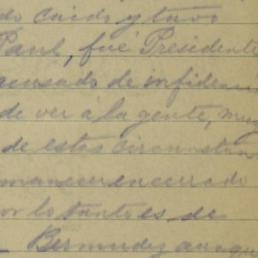 do caido y tuvo
Paul, fué Presidente
acusado de infiden
de ver á la gente, muy
de estas circunstan
manecer encerrado
por lo tanto es de
Bermudez aunqu